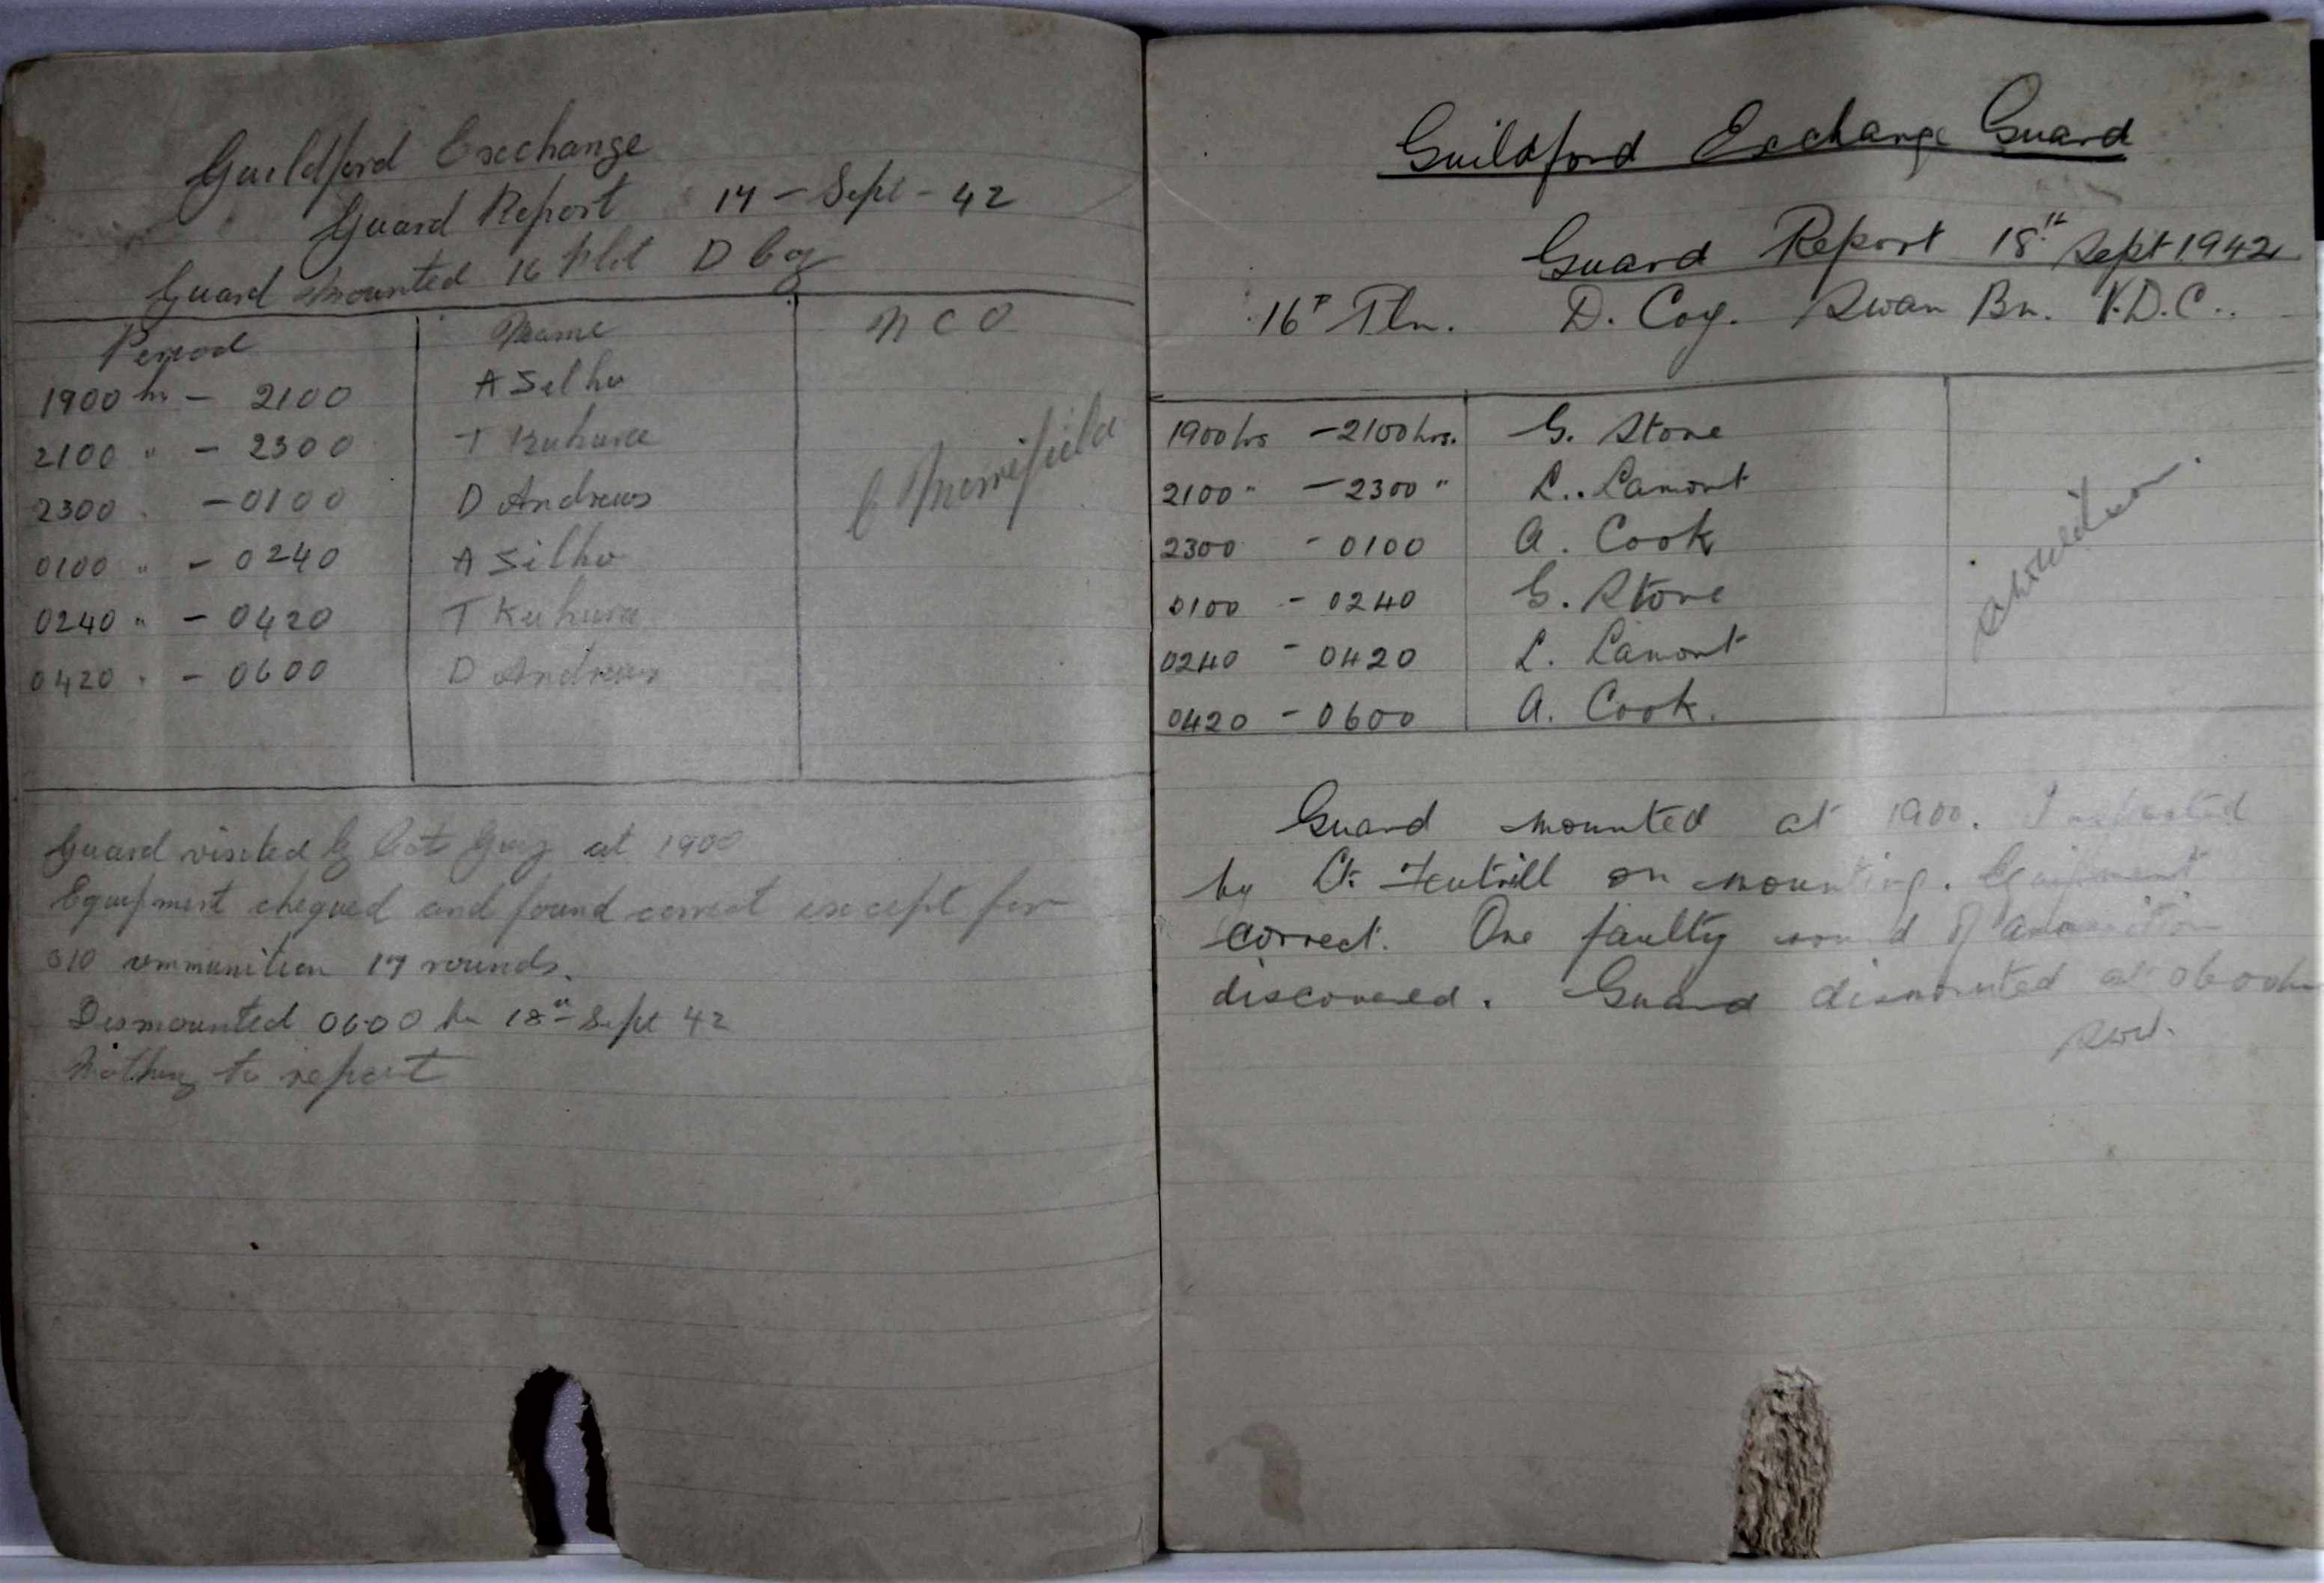 Guildford Exchange
Guard Report 17 - Sept - 42
Guard Mounted 16 Plt D Coy
Period Name N C O
1900 hr - 2100 A Silho
2100 " - 2300 T
2300 " - 0100 D Andrews
C Merrifield
0100 " - 0240 A Silho
0240 " - 0420 T
0420 " - 0600 D Andrews
Guard visited by at 1900
Equipment chequed and found correct except for
310 ammunition 17 rounds.
Dismounted 0600 hr 18th Sept 42
Nothing to report
Guildford Exchange Guard
Guard Report 18th Sept 1942
16 Pln. D. Coy. Swan Bn. V.D.C..
1900 hrs - 2100 hrs. G. Stone
2100 " - 2300 " L. Lamont
2300 - 0100 A. Cook
0100 - 0240 G. Stone
0240 - 0420 L. Lamont
0420 - 0600 A. Cook.
Guard mounted at 1900. Inspected
by Lt. on mounting. Equipment
correct. One faulty round of ammunition
discovered. Guard dismounted at 0600 hr